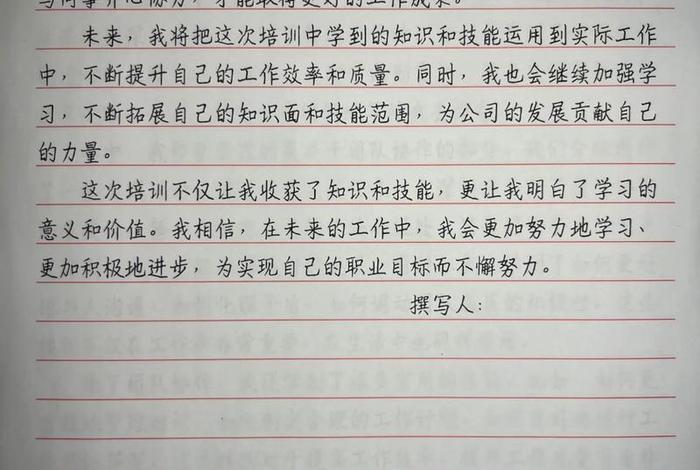 与同事齐心协力，才能取得更好的工作成果。
未来，我将把这次培训中学到的知识和技能运用到实际工作
中，不断提升自己的工作效率和质量。同时，我也会继续加强学
习，不断拓展自己的知识面和技能范围，为公司的发展贡献自己
的力量。
这次培训不仅让我收获了知识和技能，更让我明白了学习的
意义和价值。我相信，在未来的工作中，我会更加努力地学习、
更加积极地进步，为实现自己的职业目标而不懈努力。
撰写人：